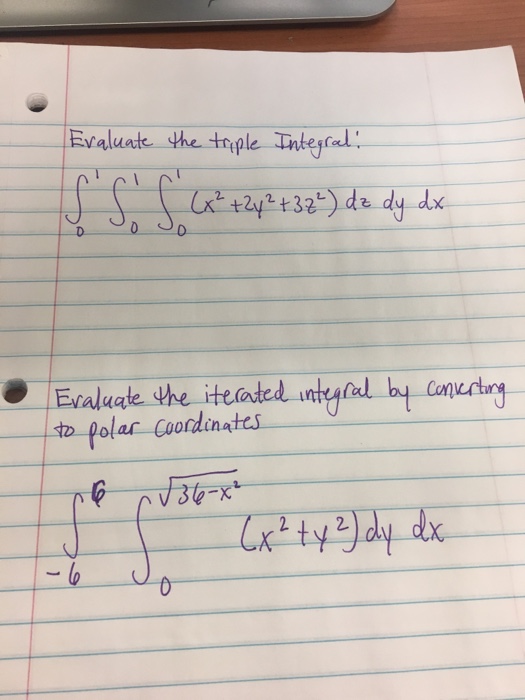 Evaluate the triple Integral:
∫₀¹ ∫₀¹ ∫₀¹ (x² + 2y² + 3z²) dz dy dx
Evaluate the iterated integral by converting
to polar coordinates
∫₋₆⁶ ∫₀^√(36-x²) (x² + y²) dy dx